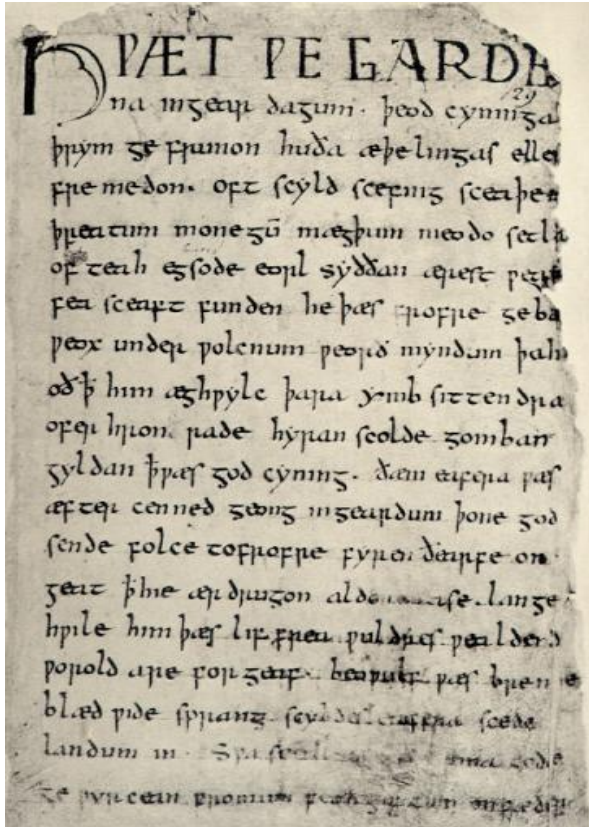 HǷÆT ǷE GARDE
na ingear dagum. þeod cyninga
þrym ge frunon huða æþelingas ellen
fre medon. oft scyld scefing sceaþena
þreatum monegū mægþum meodo setla
of teah egsode eorl syððan ærest ƿearð
fea sceaft funden he þæs frofre geba
ƿeox under ƿolcnum ƿeorð myndum þah
oðꝥ him æghƿylc þara ymb sittendra
ofer hron rade hyran scolde gomban
gyldan ꝥƿæs god cyning. ðæm eafera ƿæs
æfter cenned geong ingeardum þone god
sende folce tofrofre fyren ðearfe on
geat ꝥhie ær drugon aldor ase. lange
hƿile him þæs lif frea ƿuldres ƿealdend
ƿorold are for geaf. beoƿulf ƿæs breme
blæd ƿide sprang scyldes eafera scede
landum in. Sƿa guma gode
ge ƿyrcean fromum feoh giftum
29